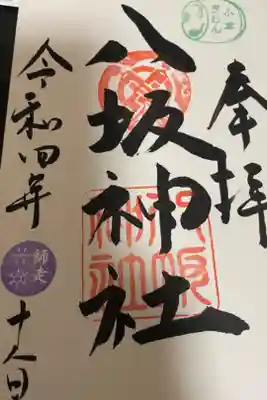 小倉
ぎおん
奉拝
八坂神社
八坂
神社
令和四年
師走
十八日